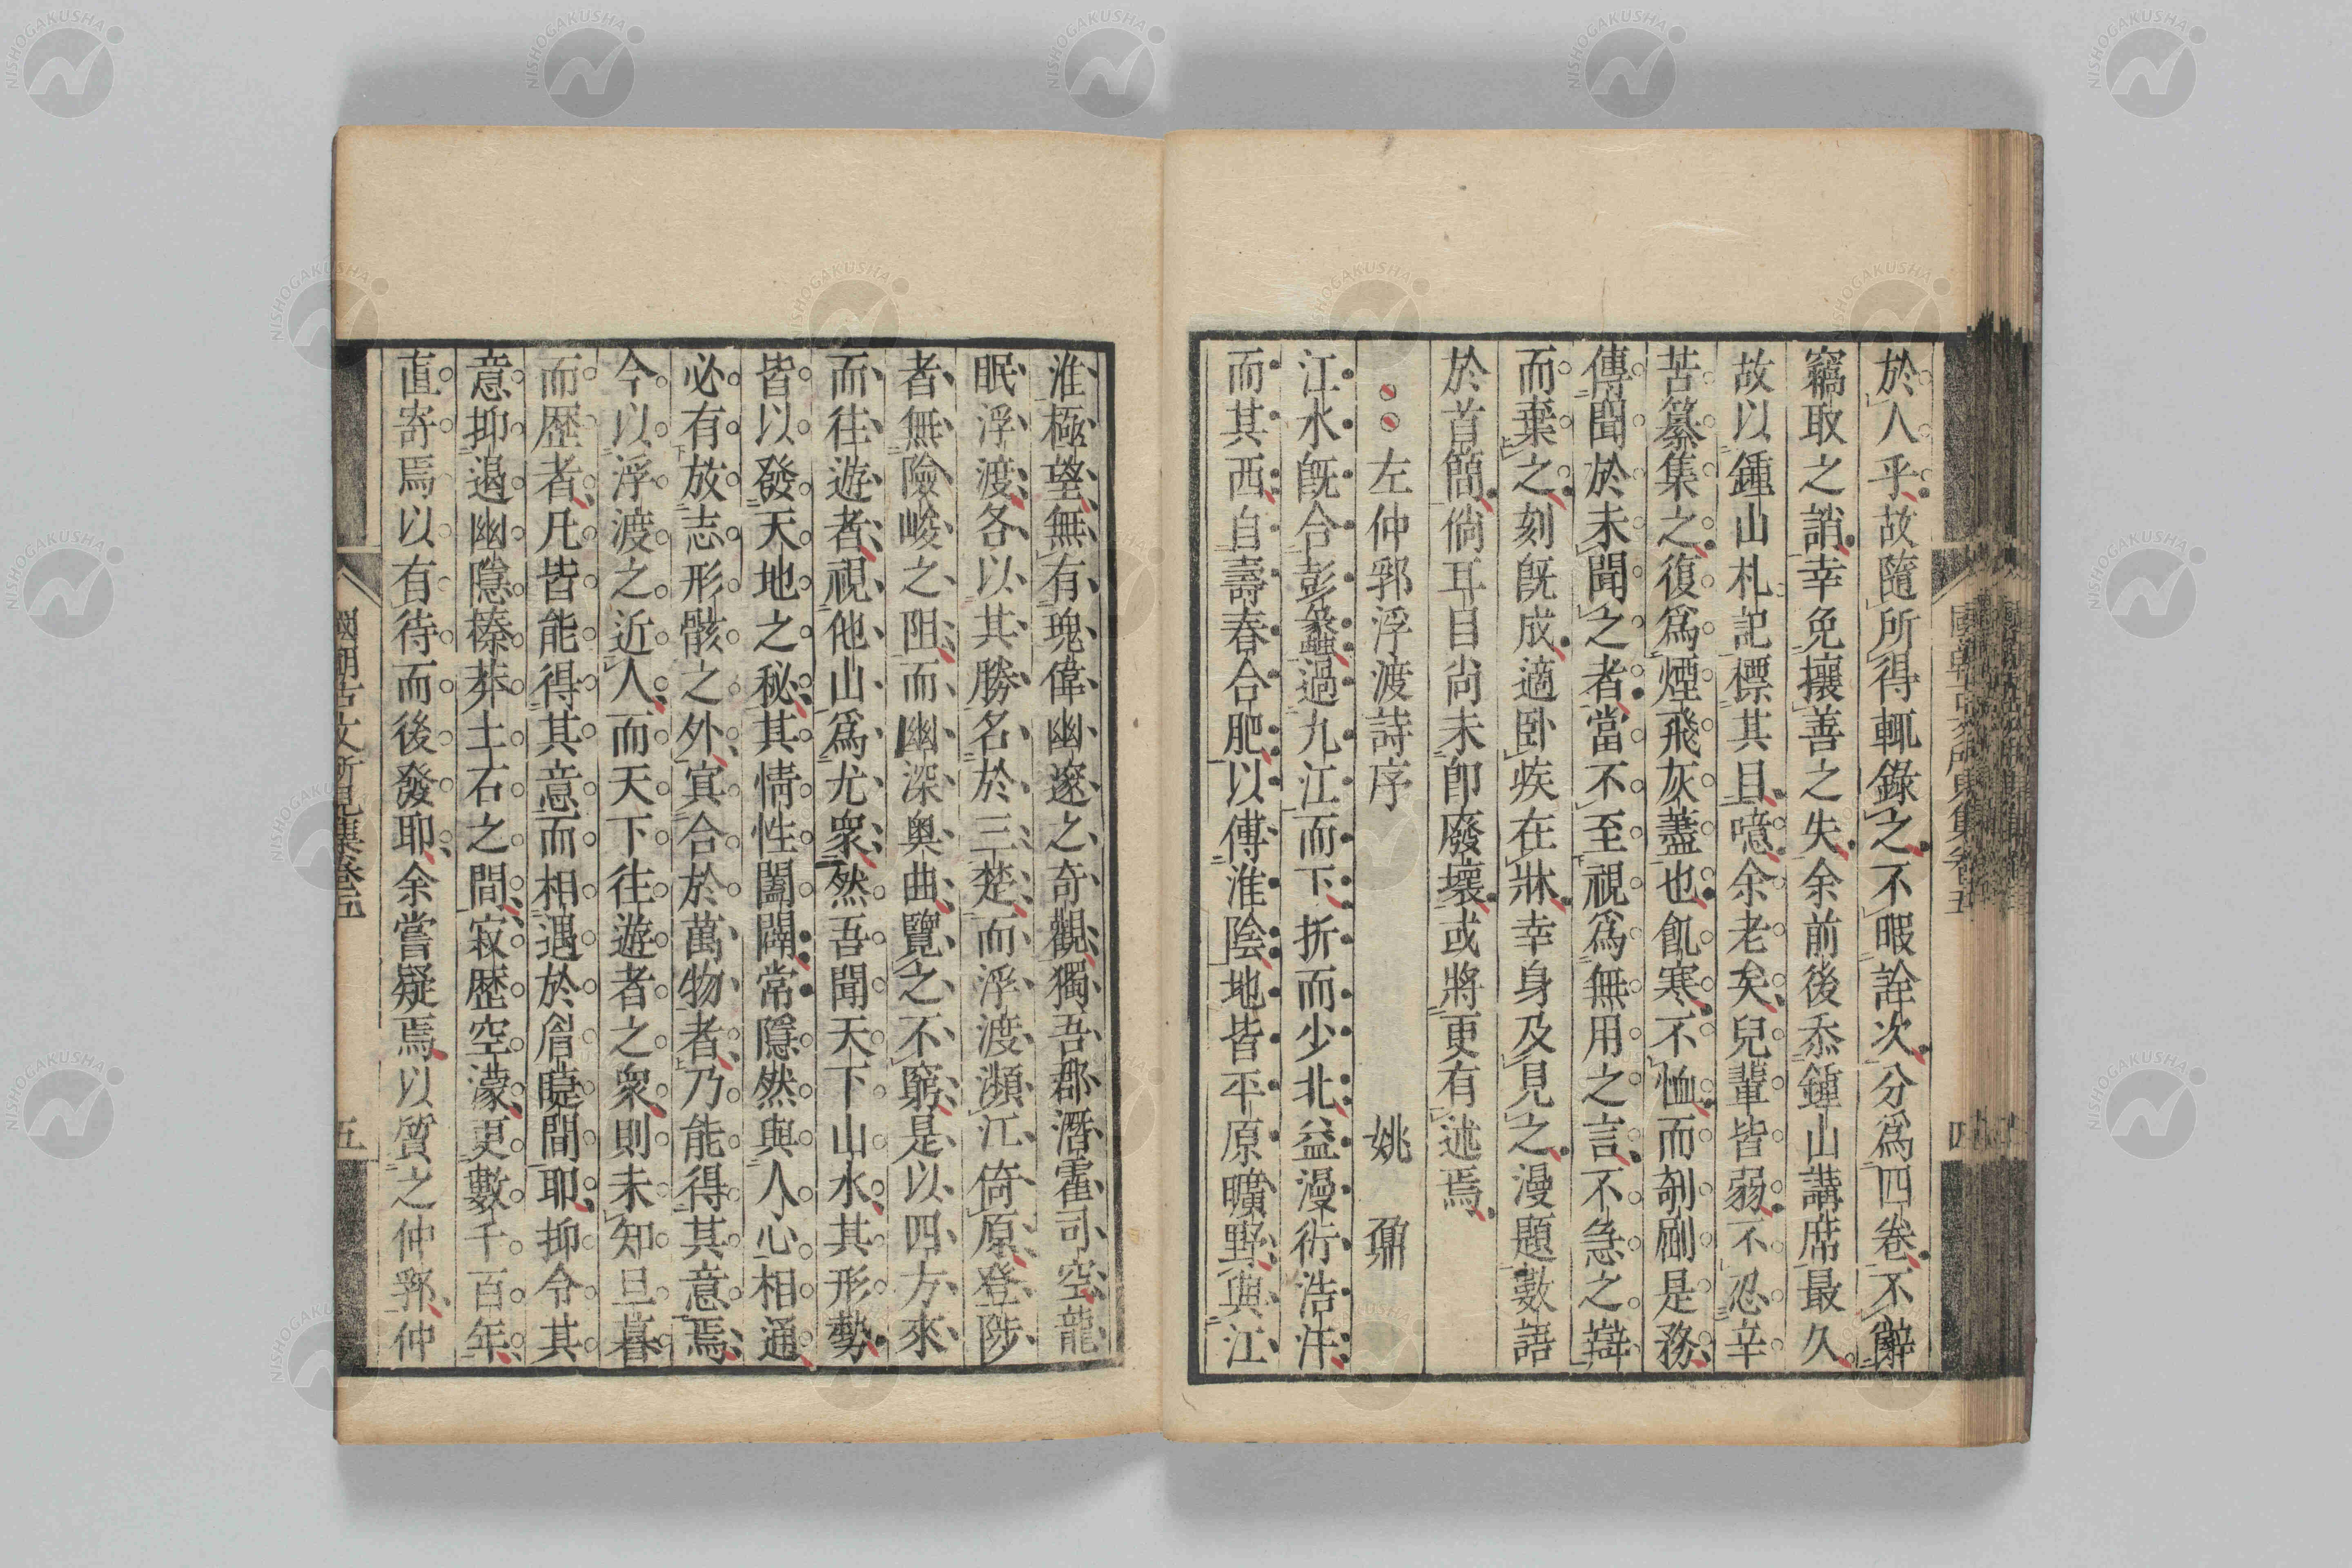 於人乎故隨所得輒錄之不暇詮次分爲四卷不辭
竊取之誚幸免攘善之失余前後忝鍾山講席最久
故以鍾山札記標其目噫余老矣兒輩皆弱不忍辛
苦纂集之復爲煙飛灰蓋也飢寒不恤而剞劂是務
傳聞於未聞之者當不至視爲無用之言不急之辯
而棄之刻旣成適卧疾在牀幸身及見之漫題數語
於首簡倘耳目尚未卽廢壞或將更有述焉
左仲郛浮渡詩序 姚鼐
江水旣合彭蠡過九江而下折而少北益漫衍浩汗
而其西自壽春合肥以傅淮陰地皆平原曠野與江
淮極望無有瑰偉幽邃之奇觀獨吾郡潛霍司空龍
眠浮渡各以其勝名於三楚而浮渡瀕江倚原登陟
者無險峻之阻而幽深奥曲覽之不窮是以四方來
而往遊者視他山爲尤衆然吾聞天下山水其形勢
皆以發天地之秘其情性闔闢常隱然與人心相通
必有放志形骸之外宾合於萬物者乃能得其意焉
今以浮渡之近人而天下往遊者之衆則未知旦暮
而歷者凡皆能得其意而相遇於眉睫間耶抑令其
意抑遏幽隱榛莽土石之間寂歷空濛更數千百年
直寄焉以有待而後發耶余嘗疑焉以質之仲郛仲
國朝古文所見集卷五
五
NISHOGAKUSHA